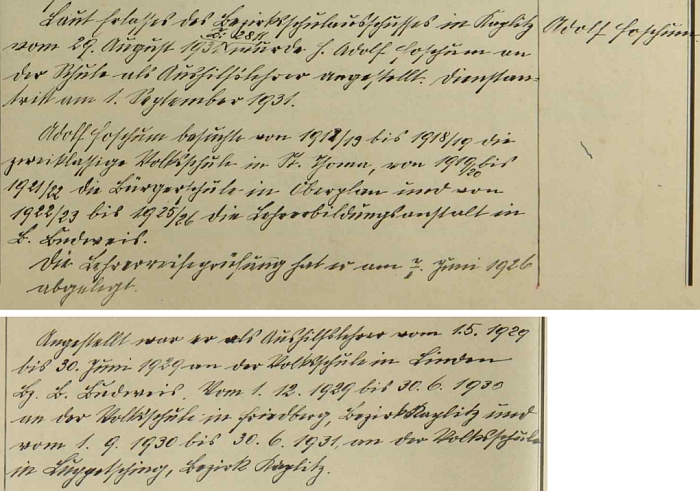 Laut Erlasses des Bezirksschulausschusses in Kaplitz
vom 29. August 1931, Z. 2811 wurde H. Adolf Foschum an
der Schule als Aushilfslehrer angestellt. Dienstan-
tritt am 1. September 1931.
Adolf Foschum
Adolf Foschum besuchte von 1912/13 bis 1918/19 die
zweiklassige Volksschule in St. Thoma, von 1919/20 bis
1921/22 die Bürgerschule in Oberplan und von
1922/23 bis 1925/26 die Lehrerbildungsanstalt in
B. Budweis.
Die Lehrerreifeprüfung hat er am Juni 1926
abgelegt.
Angestellt war er als Aushilfslehrer vom 1.5. 1929
bis 30. Juni 1929 an der Volksschule in Linden
Bz. B. Budweis. Vom 1. 12. 1929 bis 30. 6. 1930
an der Volksschule in Friedberg, Bezirk Kaplitz und
vom 1. 9. 1930 bis 30. 6. 1931, an der Volksschule
in Luppetsching, Bezirk Kaplitz.